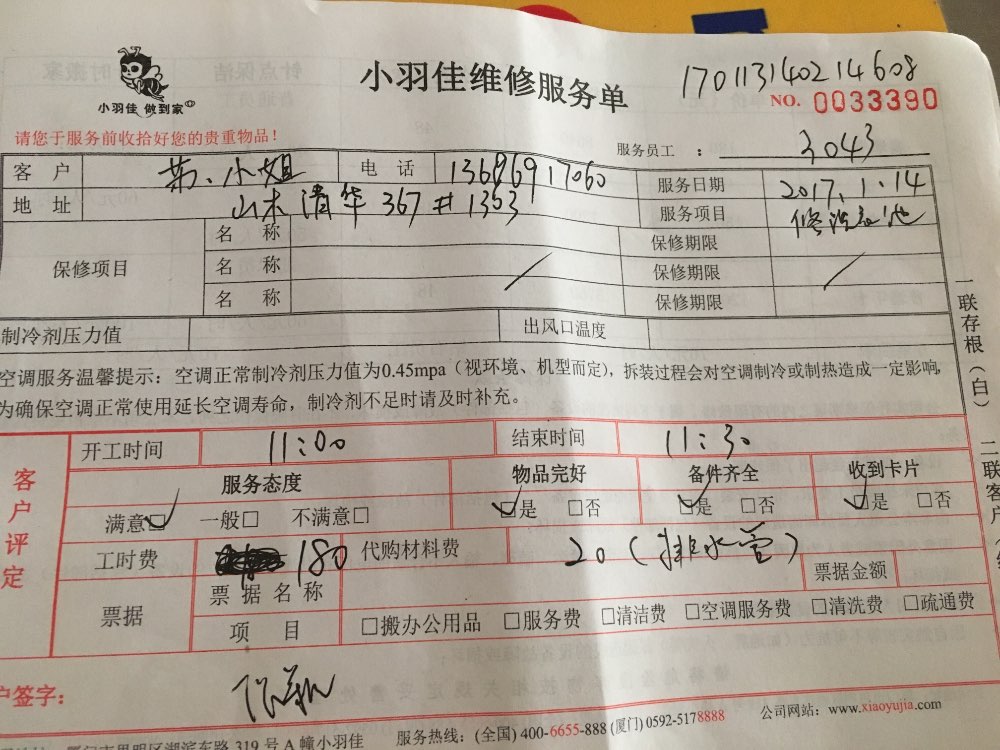 小羽佳 做到家
小羽佳维修服务单
170113140214608
NO. 0033390
请您于服务前收拾好您的贵重物品！
服务员工 ： 3043
客 户 小姐 电 话 13696917060 服务日期 2017.1.14
地 址 清华 367# 1303 服务项目
保修项目 名 称 保修期限
名 称 保修期限
名 称 保修期限
制冷剂压力值 出风口温度
空调服务温馨提示：空调正常制冷剂压力值为0.45mpa（视环境、机型而定），拆装过程会对空调制冷或制热造成一定影响，
为确保空调正常使用延长空调寿命，制冷剂不足时请及时补充。
客户评定
开工时间 11:00 结束时间 11:30
服务态度 物品完好 备件齐全 收到卡片
满意□ 一般□ 不满意□ □是 □否 □是 □否 □是 □否
工时费 180 代购材料费 20（排水管）
票据 票据名称 票据金额
项 目 □搬办公用品 □服务费 □清洁费 □空调服务费 □清洗费 □疏通费
户签字：
湖滨东路 319 号 A 幢小羽佳 服务热线：(全国) 400-6655-888 (厦门) 0592-5178888 公司网站：www.xiaoyujia.com
一联存根（白）
二联客户